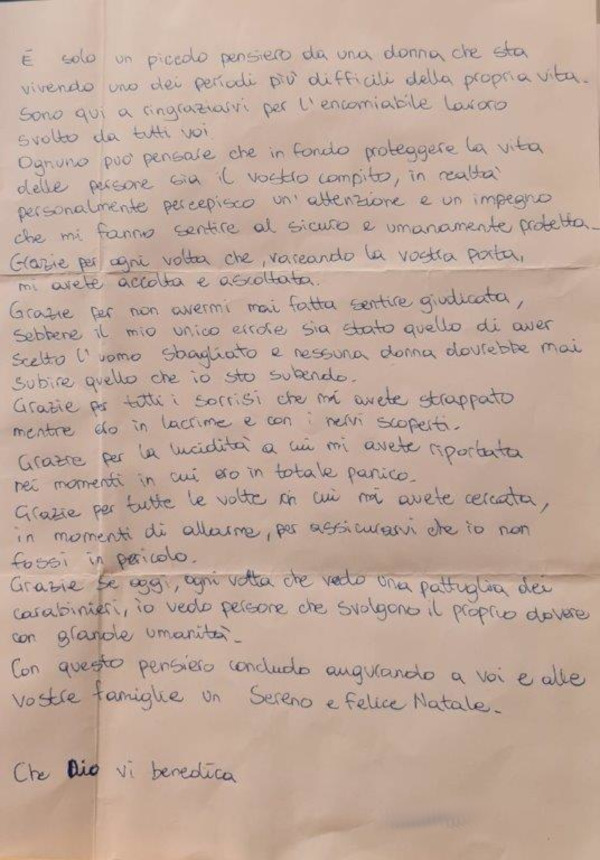 È solo un piccolo pensiero da una donna che sta
vivendo uno dei periodi più difficili della propria vita.
Sono qui a ringraziarvi per l'encomiabile lavoro
svolto da tutti voi
Ognuno può pensare che in fondo proteggere la vita
delle persone sia il vostro compito, in realtà
personalmente percepisco un'attenzione e un impegno
che mi fanno sentire al sicuro e umanamente protetta.
Grazie per ogni volta che, varcando la vostra porta,
mi avete accolta e ascoltata.
Grazie per non avermi mai fatta sentire giudicata,
sebbene il mio unico errore sia stato quello di aver
scelto l'uomo sbagliato e nessuna donna dovrebbe mai
subire quello che io sto subendo.
Grazie per tutti i sorrisi che mi avete strappato
mentre ero in lacrime e con i nervi scoperti.
Grazie per la lucidità a cui mi avete riportata
nei momenti in cui ero in totale panico.
Grazie per tutte le volte in cui mi avete cercata,
in momenti di allarme, per assicurarvi che io non
fossi in pericolo.
Grazie se oggi, ogni volta che vedo una pattuglia dei
carabinieri, io vedo persone che svolgono il proprio dovere
con grande umanità.
Con questo pensiero concludo augurando a voi e alle
vostre famiglie un Sereno e felice Natale.
Che Dio vi benedica